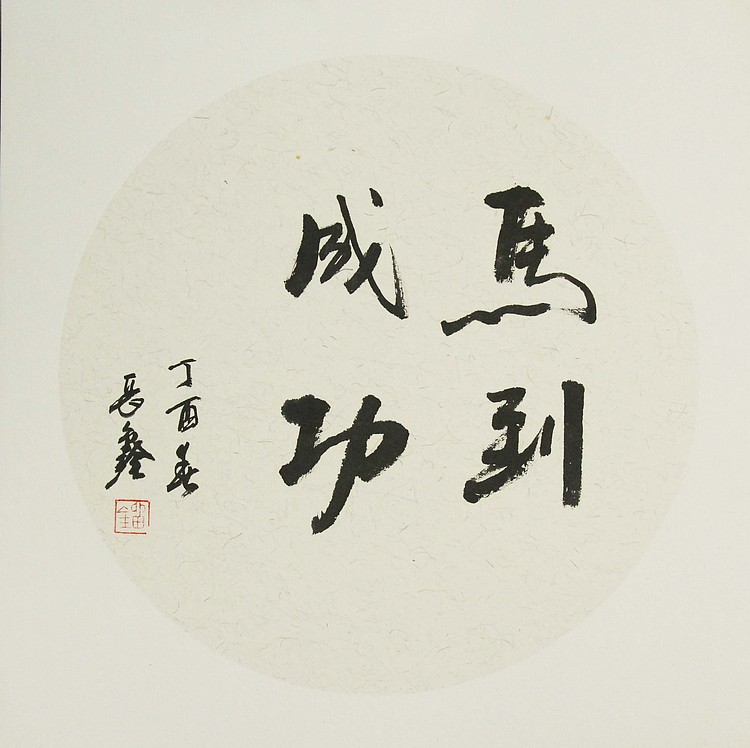 馬到
成功
丁酉春
長鑫